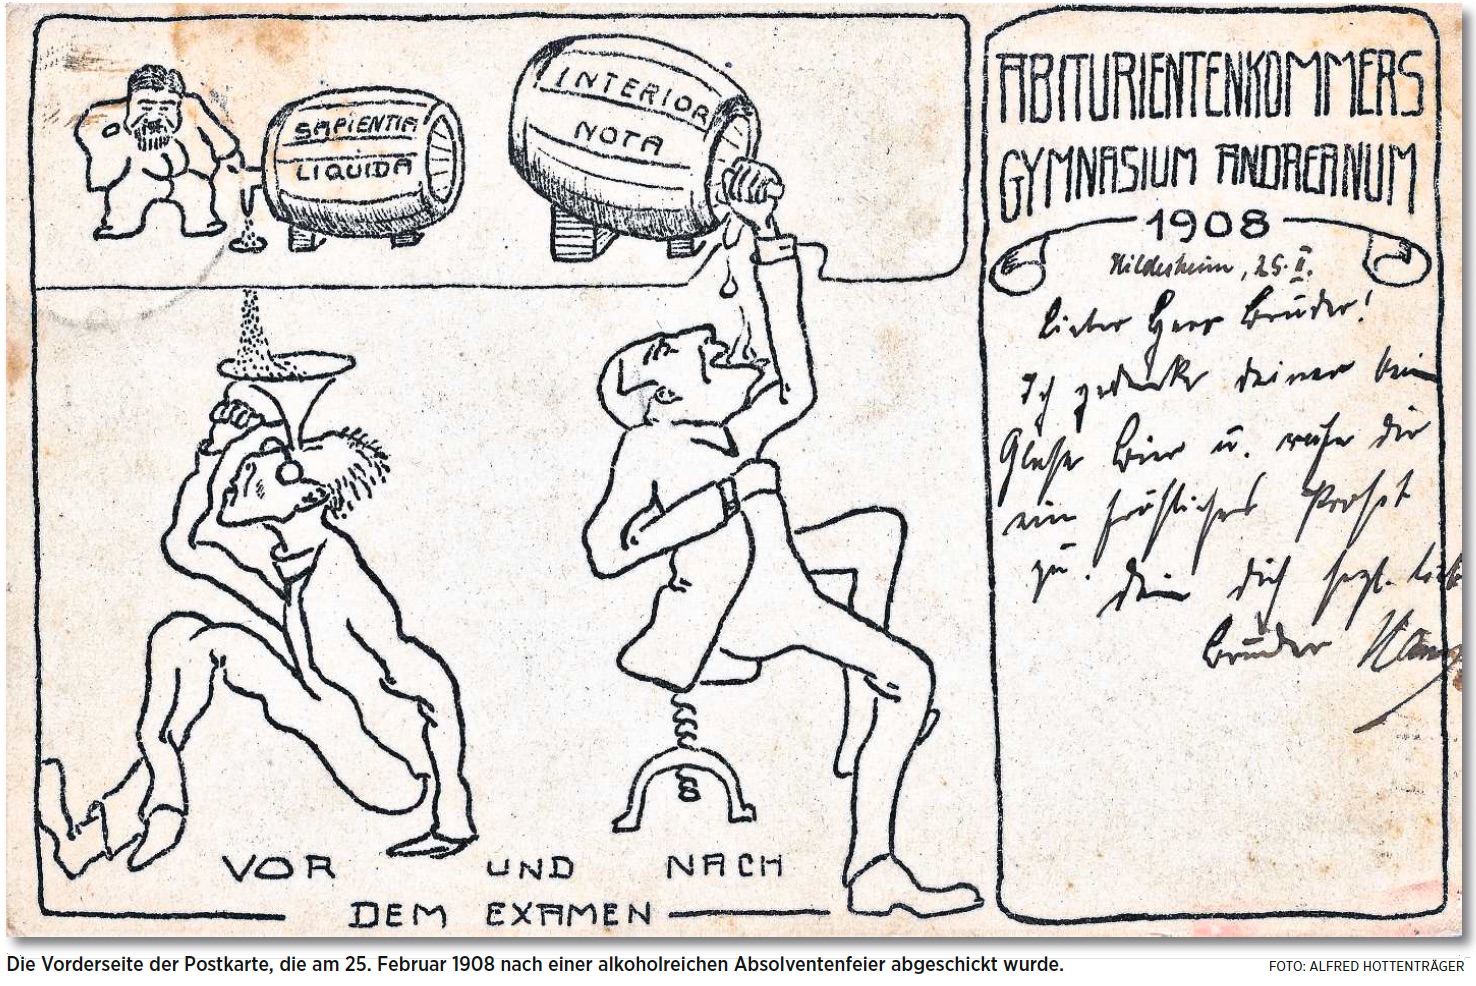 SAPIENTIA
LIQUIDA
INTERIOR
NOTA
ABITURIENTENKOMMERS
GYMNASIUM ANDREANUM
1908
Hildesheim, 25. II.
Lieber Herr Bruder!
Ich gedenke deiner beim
Glase Bier u. rufe dir
ein fröhliches Prosit
zu. Dein dich herzl. lieb.
Bruder
VOR UND NACH
DEM EXAMEN
Die Vorderseite der Postkarte, die am 25. Februar 1908 nach einer alkoholreichen Absolventenfeier abgeschickt wurde.
FOTO: ALFRED HOTTENTRÄGER